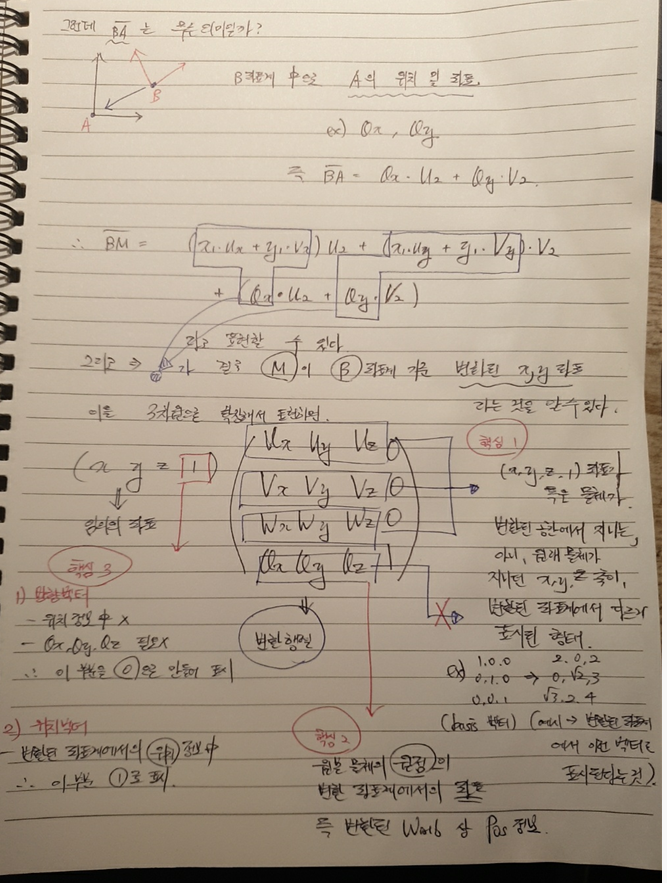 그런데 BA 는 무슨 의미일까?
B좌표계 中으로 A의 위치 및 좌표.
B
A
ex) Qx, Qy
즉 BA = Qx · U2 + Qy · V2.
∴ BM = (x1·ux + y1·Vx) U2 + (x1·uy + y1·Vy)·V2
+ (Qx · U2 + Qy · V2)
라고 표현할 수 있다.
그리고 ⇒ 가 결국 M이 B 좌표계 기준 변화된 x, y 좌표
라는 것을 알 수 있다.
이를 3차원으로 확장해서 표현하면.
(x y z 1)
Ux Uy Uz 0
Vx Vy Vz 0
Wx Wy Wz 0
Qx Qy Qz 1
임의의 좌표
변환행렬
핵심 1
(x, y, z, 1) 좌표가
혹은 물체가
변환된 공간에서 지니는,
아니, 원래 물체가
지니던 x, y, z 축이,
변환된 좌표계에서
표시된 형태.
ex) 1.0.0 2.0.2
0.1.0 ⇒ 0,√2,3
0.0.1 √3.2.4
(basis 벡터) (예시 → 변환된 좌표계
에서 이전 벡터로
표시된다는 것).
핵심 3
1) 방향벡터
- 위치 정보 中 x
- Qx, Qy, Qz 필요x
∴ 이 부분을 0으로 만들어 표시
2) 위치벡터
- 변환된 좌표계에서의 위치 정보 中
∴ 이 부분 1로 표시.
핵심 2
원본 물체의 원점의
변환 좌표계에서의 좌표
즉 변환된 World 상 Pos 정보.